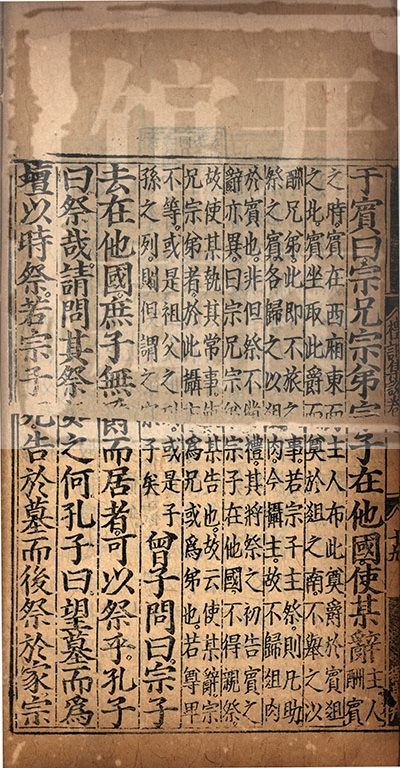 于賓曰宗兄宗弟宗子在他國使某辭主人酬賓
之時賓在西廂東面主人布此奠爵於賓俎
之北賓坐取此爵而奠於俎之南不舉之以
酬兄弟此即不旅之事若宗子主祭則凡助
祭之賓各歸之以俎肉今攝主故不歸俎肉
於賓也非但祭不備禮其將祭之初告賓之
辭亦異曰宗兄宗弟宗子在他國不得親祭
故使某執其常事使某告也故云使某辭宗
兄宗弟者於此攝主為兄或為弟也若尊卑
不等或是祖父之列或是子
孫之列則但謂之宗子矣
曾子問曰宗子
去在他國庶子無爵而居者可以祭乎孔子
曰祭哉請問其祭如之何孔子曰望墓而為
壇以時祭若宗子死告於墓而後祭於家宗